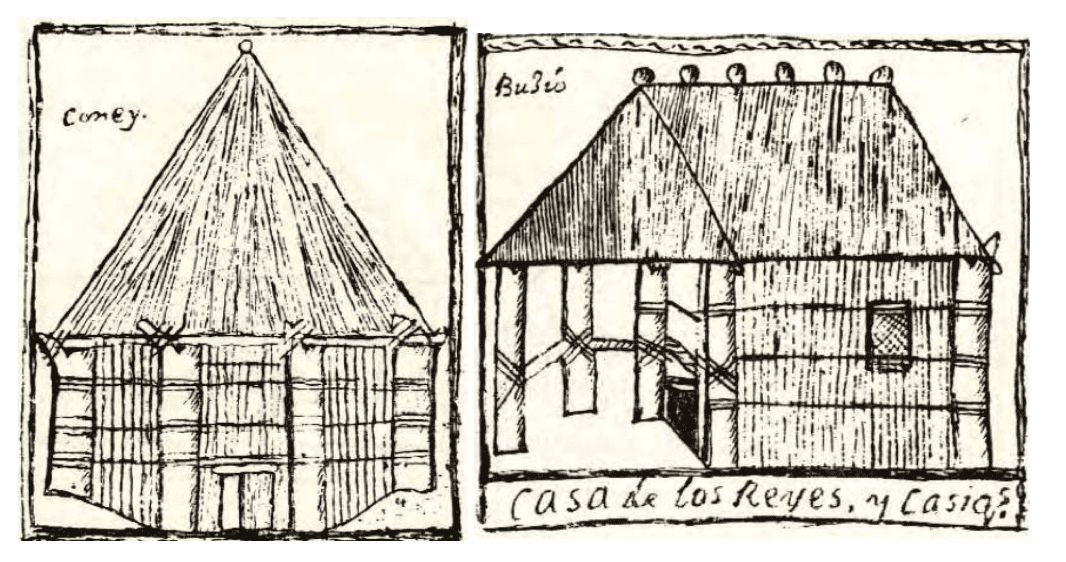 Caney.
Buhio
Casa de los Reyes, y Casiq.s